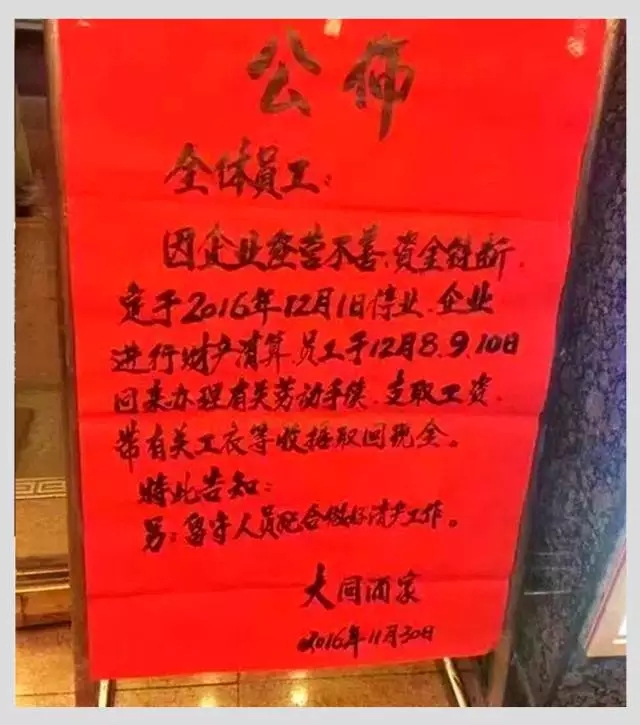 公佈
全体员工：
因企业经营不善、资金链断，
定于2016年12月1日停业、企业
进行财产清算、员工于12月8、9、10日
回来办理有关劳动手续、支取工资、
带有关工衣等收据取回现金。
特此告知：
另：留守人员配合做好清产工作。
大同酒家
2016年11月30日